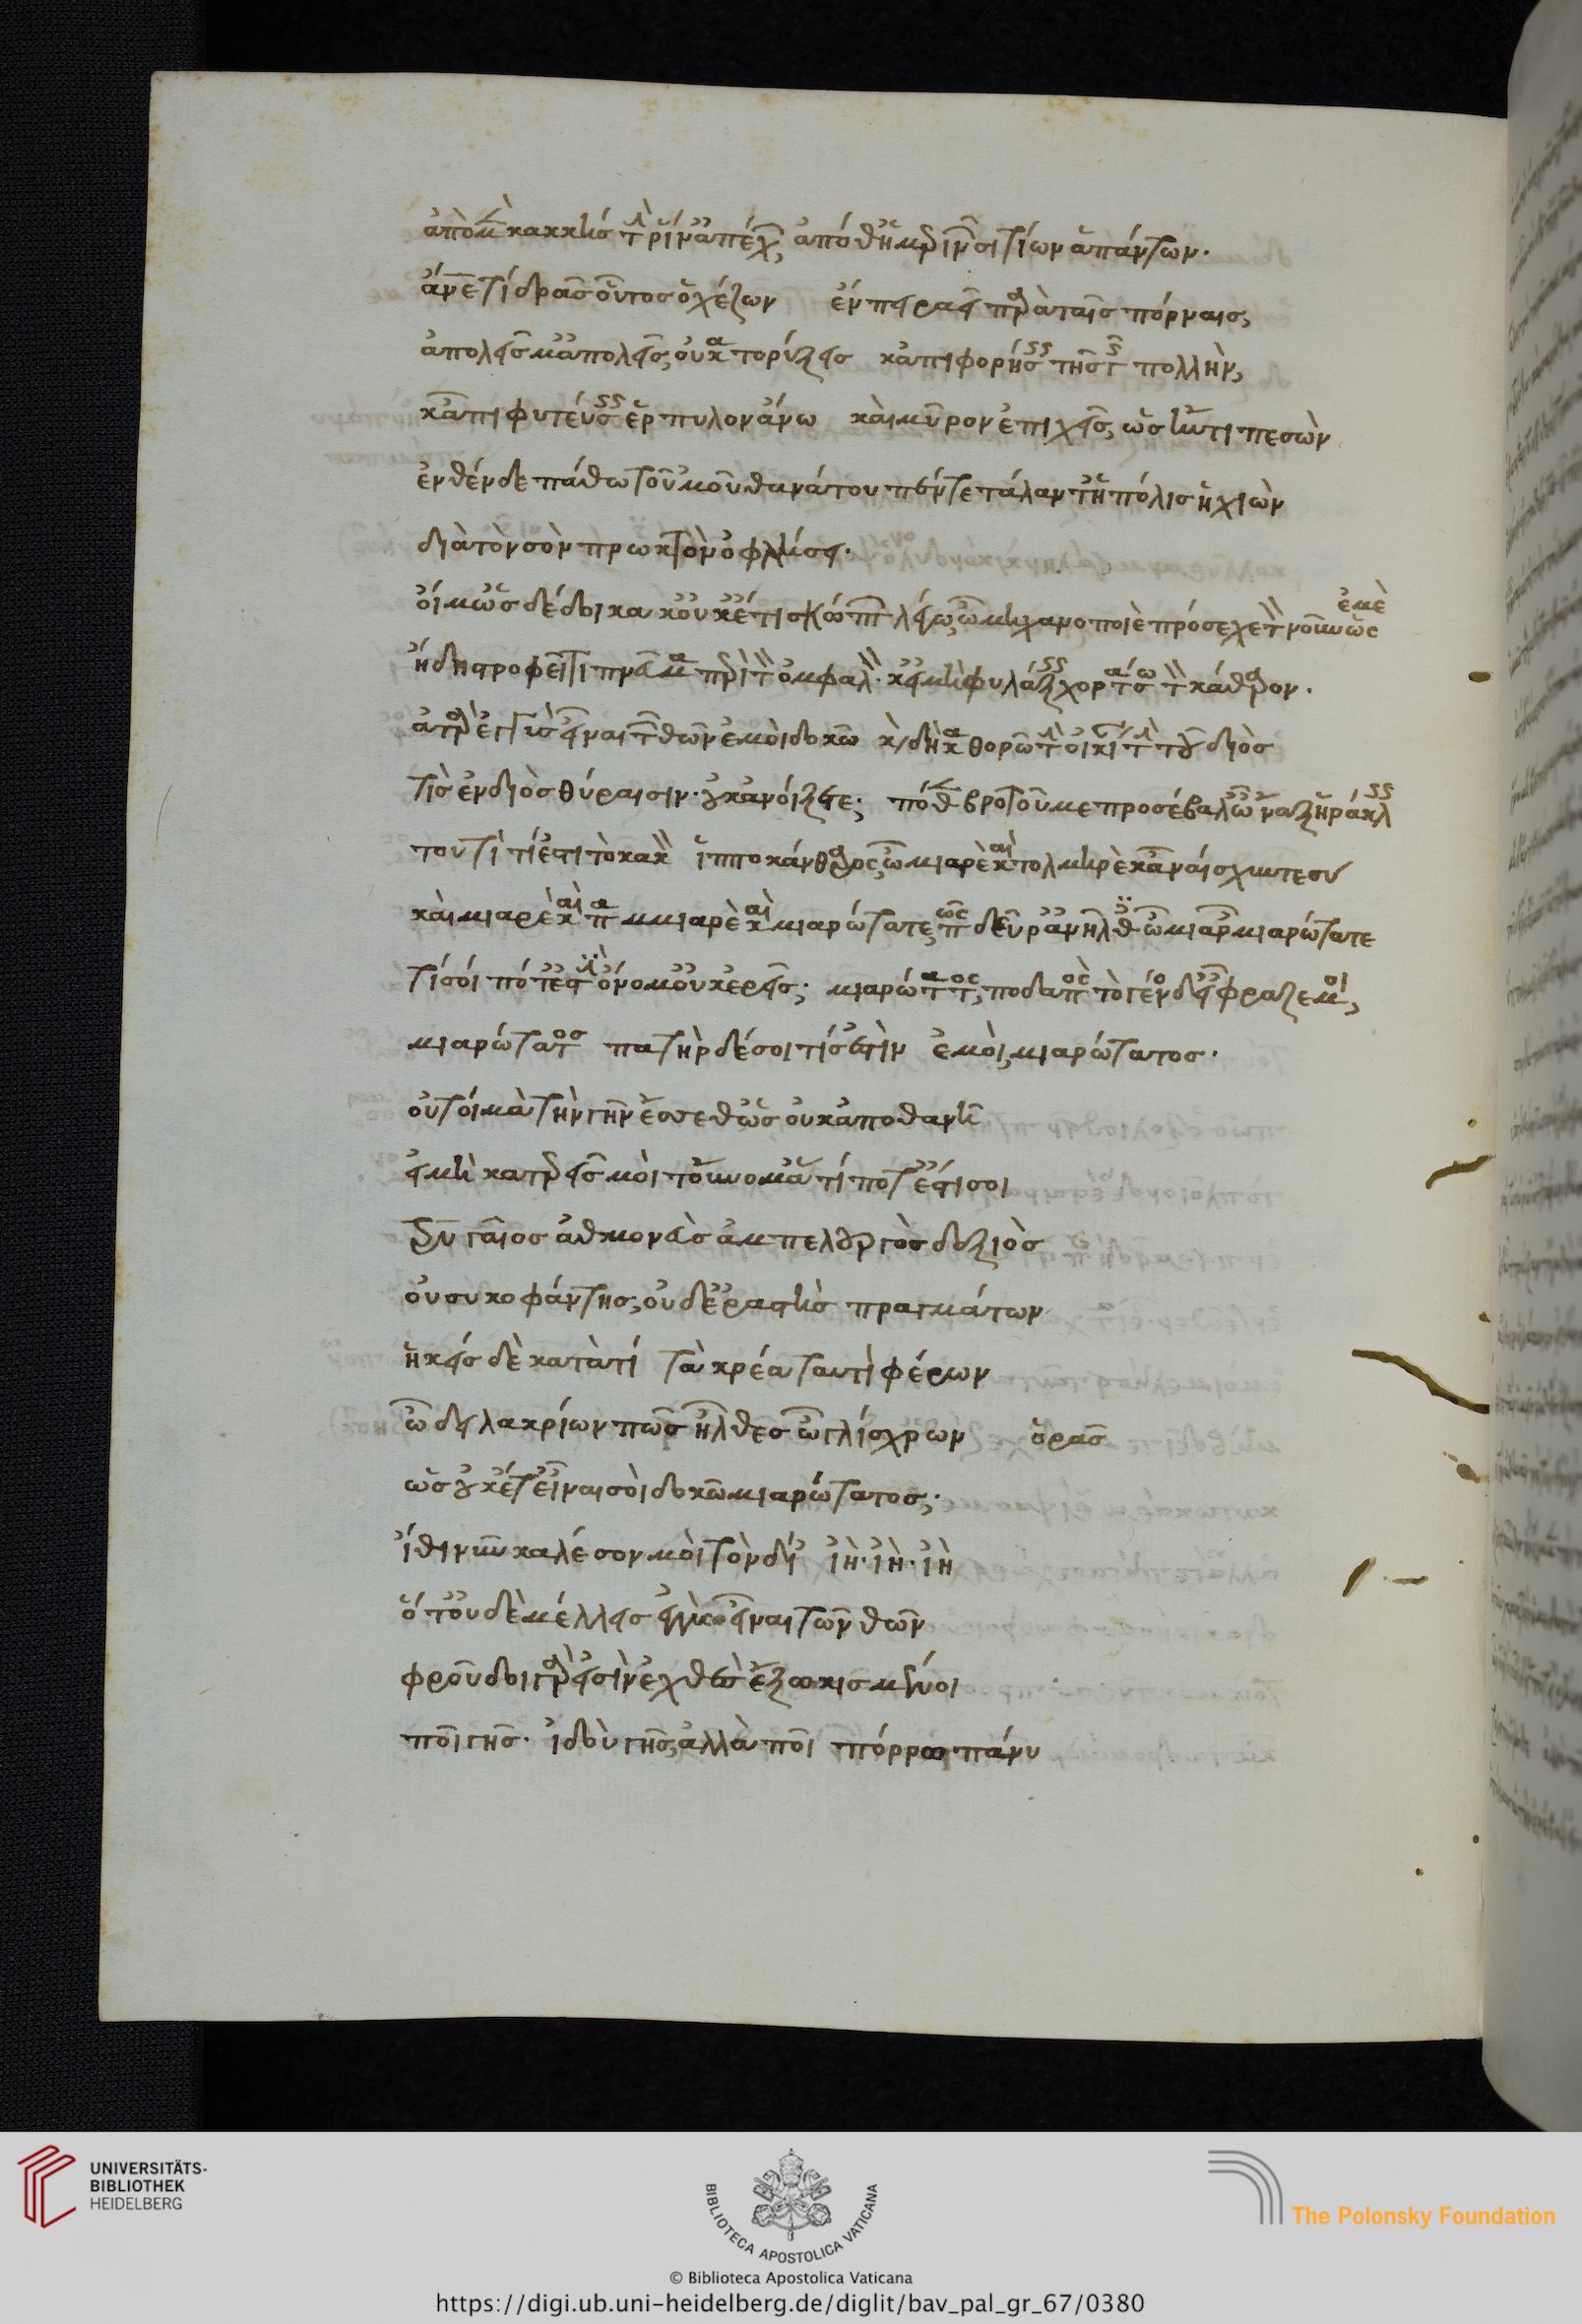 ἀπὸ μὲν κάκκης τὴν ῥίν' ἀπέχων, ἀπό θ' ἡμερινῶν σιτίων ἁπάντων.
ἄνθρωπε τί δρᾶς οὗτος ὁ χέζων ἐν πειραεῖ παρὰ ταῖς πόρναις,
ἀπολεῖς μ' ἀπολεῖς, οὐ κατορύξεις κἀπιφορήσεις τῆς γῆς πολλὴν,
κἀπιφυτεύσεις ἕρπυλον ἄνω καὶ μῦρον ἐπιχεῖς, ὡς ἤν τι πεσὼν
ἐνθένδε πάθω τοῦ 'μοῦ θανάτου πέντε τάλανθ' ἡ πόλις ἡ χιὼν
διὰ τὸν σὸν πρωκτὸν ὀφλήσει.
οἴμ' ὡς δέδοικα κ' οὐκ ἔτι σκώπτων λέγω, ὦ μηχανοποιὲ πρόσεχε τὸν νοῦν ὡς ἐμὲ
ἤδη στροφεῖ τι πνεῦμα περὶ τὸν ὀμφαλόν. κ' εἰ μὴ φυλάξεις χορτάσω τὸν κάνθαρον.
ἀτὰρ ἐγγὺς εἶναι τῶν θεῶν ἐμοὶ δοκῶ καὶ δὴ καθορῶ τὴν οἰκίαν τὴν τοῦ διὸς
τὶς ἐν διὸς θύραισιν. οὐκ ἀνοίξετε; πόθεν βροτοῦ με προσέβαλ' ὦναξ ἡράκλεις
τουτὶ τί ἐστι τὸ κακὸν ἱπποκάνθαρος, ὦ μιαρὲ καὶ τολμηρὲ κἀναίσχυντε σὺ
καὶ μιαρὲ καὶ παμμιαρὲ καὶ μιαρώτατε, πῶς δεῦρ' ἀνῆλθες ὦ μιαρῶν μιαρώτατε
τί σοί πότ' ἐστὶν ὄνομ' οὐκ ἐρεῖς; μιαρώτατος, ποδαπὸς τὸ γένος δ' εἶ φράζε μοι,
μιαρώτατος πατὴρ δέ σοι τίς ἐστὶν ἐμοὶ, μιαρώτατος.
οὔτοι μὰ τὴν γῆν ἔσθ' ὅπως οὐκ ἀποθανῆ
εἰ μὴ κατερεῖς μοὶ τοὔνομ' ὅ τί ποτ' ἔστι σοι
τρυγαῖος ἀθμονεὺς ἀμπελουργὸς δεξιὸς
οὐ συκοφάντης, οὐδ' ἐραστὴς πραγμάτων
ἥκεις δὲ κατὰ τί τὰ κρέα ταυτὶ φέρων
ὦ δειλακρίων πῶς ἦλθες ὦ γλίσχρων ὁρᾶς
ὡς οὐκ ἔτ' εἶναι σοὶ δοκῶ μιαρώτατος;
ἴθι νῦν κάλεσον μοὶ τὸν δί' ἰὴ. ἰὴ. ἰὴ
ὅτ' οὐδὲ μέλλεις ἐγγὺς εἶναι τῶν θεῶν
φροῦδοι γὰρ εἰσὶν ἐχθὲς ἐξῳκισμένοι
ποῖ γῆς. ἰδοὺ γῆς, ἀλλὰ ποῖ πόρρω πάνυ
UNIVERSITÄTS-
BIBLIOTHEK
HEIDELBERG
BIBLIOTECA APOSTOLICA VATICANA
The Polonsky Foundation
© Biblioteca Apostolica Vaticana
https://digi.ub.uni-heidelberg.de/diglit/bav_pal_gr_67/0380